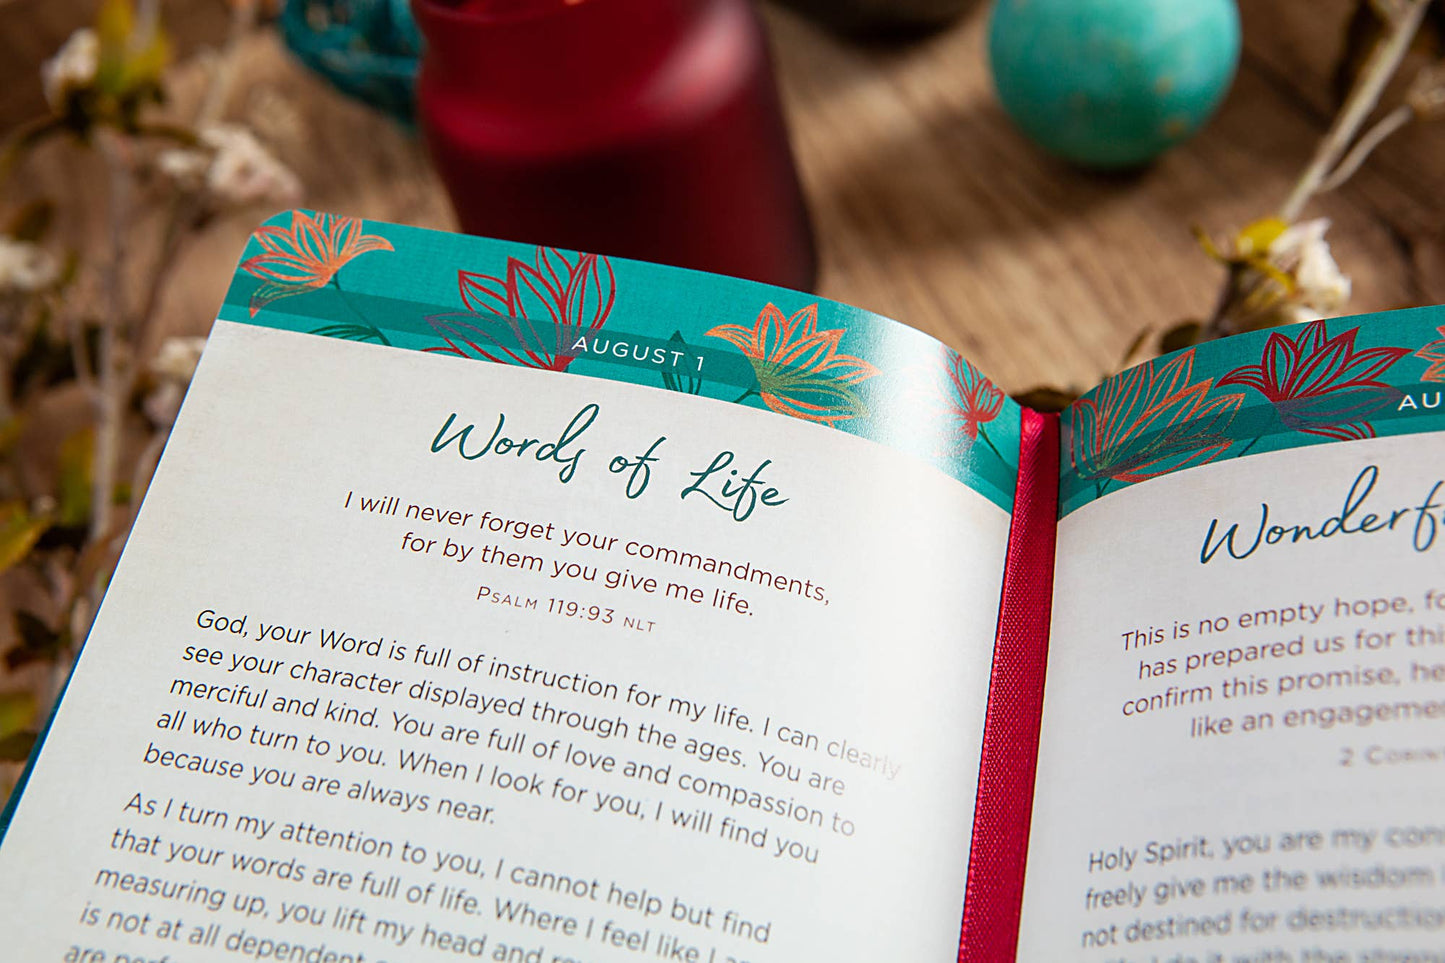 AUGUST 1
Words of Life
I will never forget your commandments,
for by them you give me life.
Psalm 119:93 NLT
God, your Word is full of instruction for my life. I can clearly
see your character displayed through the ages. You are
merciful and kind. You are full of love and compassion to
all who turn to you. When I look for you, I will find you
because you are always near.
As I turn my attention to you, I cannot help but find
that your words are full of life. Where I feel like I
measuring up, you lift my head and
is not at all dependent
are
AU
This is no empty hope,
has prepared us for
confirm this promise,
like an
2
Holy Spirit, you are my
freely give me the wisdom
not destined for